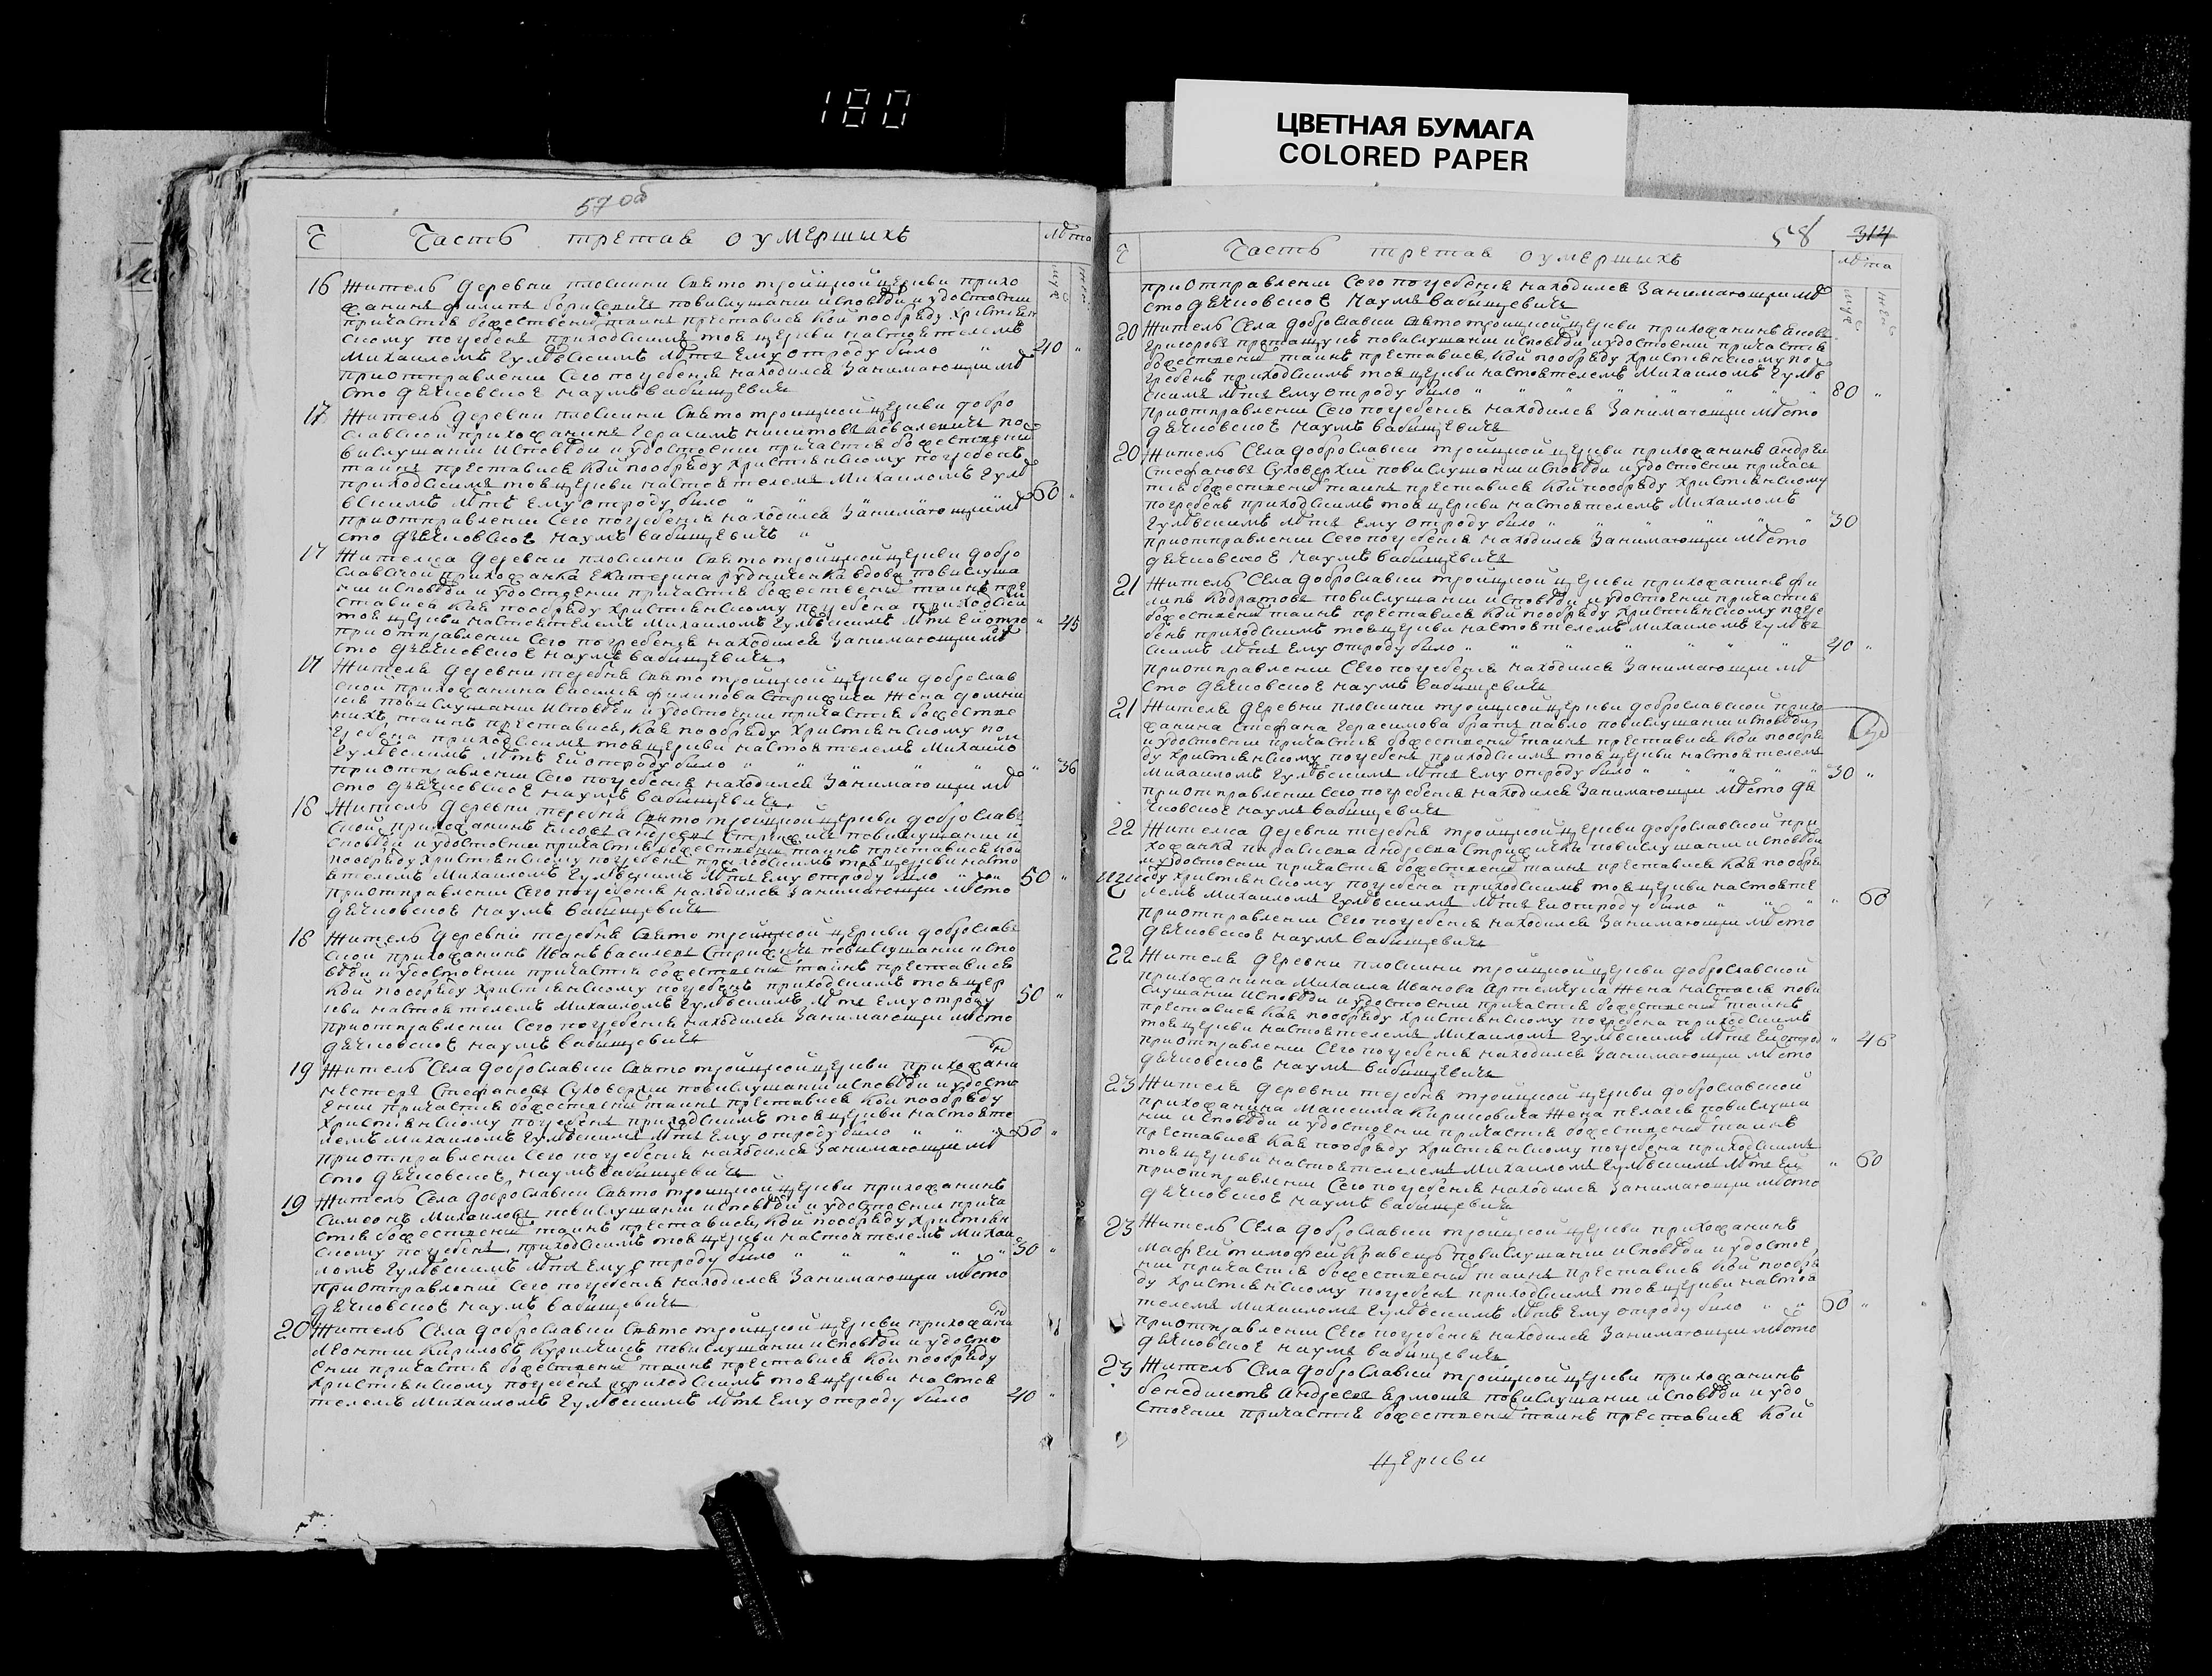 180
ЦВЕТНАЯ БУМАГА
COLORED PAPER
57 об
Ч Часть третая о умершихъ лѣта
муж жен
16 Житель деревни плоскини Свято троицкой церкви прихо
жанинъ филипъ повислушании исповѣди и удостоении
причастія божественыхъ таинъ преставися кой пообряду христиан
скому погребенъ приходскимъ тоя церкви настоятелемъ
Михаиломъ Гулѣвскимъ лѣтъ Ему отроду было 40
приотправлении Сего погребения находился Занимающии мѣ
сто дячковское наумъ бабищевичъ
17 Житель деревни плоскини Свято троицкой церкви добро
славской прихожанинъ Герасимъ никитовъ по
вислушании исповѣди и удостоении причастія божественыхъ
таинъ преставися кой пообряду христианскому погребенъ
приходскимъ тоя церкви настоятелемъ Михаиломъ Гулѣ
вскимъ лѣтъ Ему отроду было 60
приотправлении Сего погребения находился Занимающии мѣ
сто дячковское наумъ бабищевичъ
17 Жителка деревни плоскини Свято троицкой церкви добро
славской прихожанка Екатерина рудниченка вдова повислуша
нии исповѣди и удостоении причастія божественыхъ таинъ пре
ставися кая пообряду христианскому погребена приходским
тоя церкви настоятелемъ Михаиломъ Гулѣвскимъ лѣтъ Ей отро 45
приотправлении Сего погребения находился Занимающии мѣ
сто дячковское наумъ бабищевичъ
17 Жителя деревни теребня Свято троицкой церкви доброслав
ской прихожанина василия филипова Стрижика жена домни
кия повислушании исповѣди и удостоении причастія божестве
нихъ таинъ преставися, кая пообряду христианскому по
гребена приходскимъ тоя церкви настоятелемъ Михаило
Гулѣвскимъ лѣтъ Ей отроду было 36
приотправлении Сего погребения находился Занимающии мѣ
сто дячковское наумъ бабищевичъ
18 Житель деревни теребня Свято троицкой церкви дoброславс
ской прихожанинъ андреевъ Стрижикъ повислушании и
сповѣди и удостоении причастія божественыхъ таинъ преставися кой
пообряду христианскому погребенъ приходскимъ тоя церкви насто
ятелемъ Михаиломъ Гулѣвскимъ лѣтъ Ему отроду было 50
приотправлении Сего погребения находился Занимающии мѣсто
дячковское наумъ бабищевичъ
18 Житель деревни теребня Свято троицкой церкви доброслав
ской прихожанинъ Иванъ василевъ Стрижикъ повислушании испо
вѣди и удостоении причастія божественыхъ таинъ преставися
кой пообряду христианскому погребенъ приходскимъ тоя цер
кви настоятелемъ Михаиломъ Гулѣвскимъ лѣтъ Ему отроду 50
приотправлении Сего погребения находился Занимающии мѣсто
дячковское наумъ бабищевичъ
19 Житель Села доброславки Свято троицкой церкви прихожани
нестеръ Стефановъ Суховерхии повислушании исповѣди и удосто
ении причастія божественыхъ таинъ преставися кой пообряду
христианскому погребенъ приходскимъ тоя церкви настояте
лемъ Михаиломъ Гулѣвскимъ лѣтъ Ему отроду было 60
приотправлении Сего погребения находился Занимающии мѣ
сто дячковское наумъ бабищевичъ
19 Житель Села доброславки Свято троицкой церкви прихожанинъ
Симеонъ Михаиловъ повислушании исповѣди и удостоении прича
стія божественыхъ таинъ преставися, кой пообряду христиан
скому погребенъ приходскимъ тоя церкви настоятелемъ Михаи
ломъ Гулѣвскимъ лѣтъ Ему отроду было 30
приотправлении Сего погребения находился Занимающии мѣсто
дячковское наумъ бабищевичъ
20 Житель Села доброславки Свято троицкой церкви прихожани
Леонтии Кириловъ повислушании исповѣди и удосто
ении причастія божественыхъ таинъ преставися кой пообряду
христианскому погребенъ приходскимъ тоя церкви настоя
телемъ Михаиломъ Гулѣвскимъ лѣтъ Ему отроду было 40
58 314
Ч Часть третая о умершихъ лѣта
муж жен
приотправлении Сего погребения находился Занимающии мѣ
сто дячковское наумъ бабищевичъ
20 Житель Села доброславки Свято троицкой церкви прихожанинъ
Григоровъ повислушании исповѣди и удостоении причастія
божественыхъ таинъ преставися, кой пообряду христианскому по
гребенъ приходскимъ тоя церкви настоятелемъ Михаиломъ Гулѣ
вскимъ лѣтъ Ему отроду было 80
приотправлении Сего погребения находился Занимающии мѣсто
дячковское наумъ бабищевичъ
20 Житель Села доброславки троицкой церкви прихожанинъ андреи
Стефановъ Суховерхии повислушании исповѣди и удостоении причас
тія божественыхъ таинъ преставися кой пообряду христианскому
погребенъ приходскимъ тоя церкви настоятелемъ Михаиломъ
Гулѣвскимъ лѣтъ Ему отроду было 30
приотправлении Сего погребения находился Занимающии мѣсто
дячковское наумъ бабищевичъ
21 Житель Села доброславки троицкой церкви прихожанинъ фи
липъ Кодратовъ повислушании исповѣди и удостоении причастія
божественыхъ таинъ преставися кой пообряду христианскому погре
бенъ приходскимъ тоя церкви настоятелемъ Михаиломъ Гулѣв
скимъ лѣтъ Ему отроду было 40
приотправлении Сего погребения находился Занимающии мѣ
сто дячковское наумъ бабищевичъ
21 Жителя деревни плоскини троицкой церкви доброславской прихо
жанина Стефана Герасимова братъ павло повислушании исповѣди
и удостоении причастія божественыхъ таинъ преставися кой пообря
ду христианскому погребенъ приходскимъ тоя церкви настоятелемъ
Михаиломъ Гулѣвскимъ лѣтъ Ему отроду было 30
приотправлении Сего погребения находился Занимающии мѣсто дя
чковское наумъ бабищевичъ
22 Жителка деревни теребня троицкой церкви доброславской при
хожанка параскева андреева Стрижичка повислушании исповѣди
и удостоении причастія божественыхъ таинъ преставися кая пообря
ду христианскому погребена приходскимъ тоя церкви настояте
лемъ Михаиломъ Гулѣвскимъ лѣтъ Ей отроду было 60
приотправлении Сего погребения находился Занимающии мѣсто
дячковское наумъ бабищевичъ
22 Жителя деревни плоскини троицкой церкви доброславской
прихожанина Михаила Иванова Артемчука жена настасия пови
слушании исповѣди и удостоении причастія божественыхъ таинъ
преставися кая пообряду христианскому погребена приходскимъ
тоя церкви настоятелемъ Михаиломъ Гулѣвскимъ лѣтъ Ей отрод 46
приотправлении Сего погребения находился Занимающии мѣсто
дячковское наумъ бабищевичъ
23 Жителя деревни теребня троицкой церкви доброславской
прихожанина Максима Кирисовича жена пелагея повислуша
нии исповѣди и удостоении причастія божественыхъ таинъ
преставися кая пообряду христианскому погребена приходскимъ
тоя церкви настоятелемъ Михаиломъ Гулѣвскимъ лѣтъ Ей 60
приотправлении Сего погребения находился Занимающии мѣсто
дячковское наумъ бабищевичъ
23 Житель Села доброславки троицкой церкви прихожанинъ
Мафей тимофей Кравецъ повислушании исповѣди и удостое
нии причастія божественыхъ таинъ преставися кой пообря
ду христианскому погребенъ приходскимъ тоя церкви настоя
телемъ Михаиломъ Гулѣвскимъ лѣтъ Ему отроду было 60
приотправлении Сего погребения находился Занимающии мѣсто
дячковское наумъ бабищевичъ
23 Житель Села доброславки троицкой церкви прихожанинъ
бенедиктъ Андреевъ Ермошъ повислушании исповѣди и удо
стоении причастія божественыхъ таинъ преставися кой
церкви